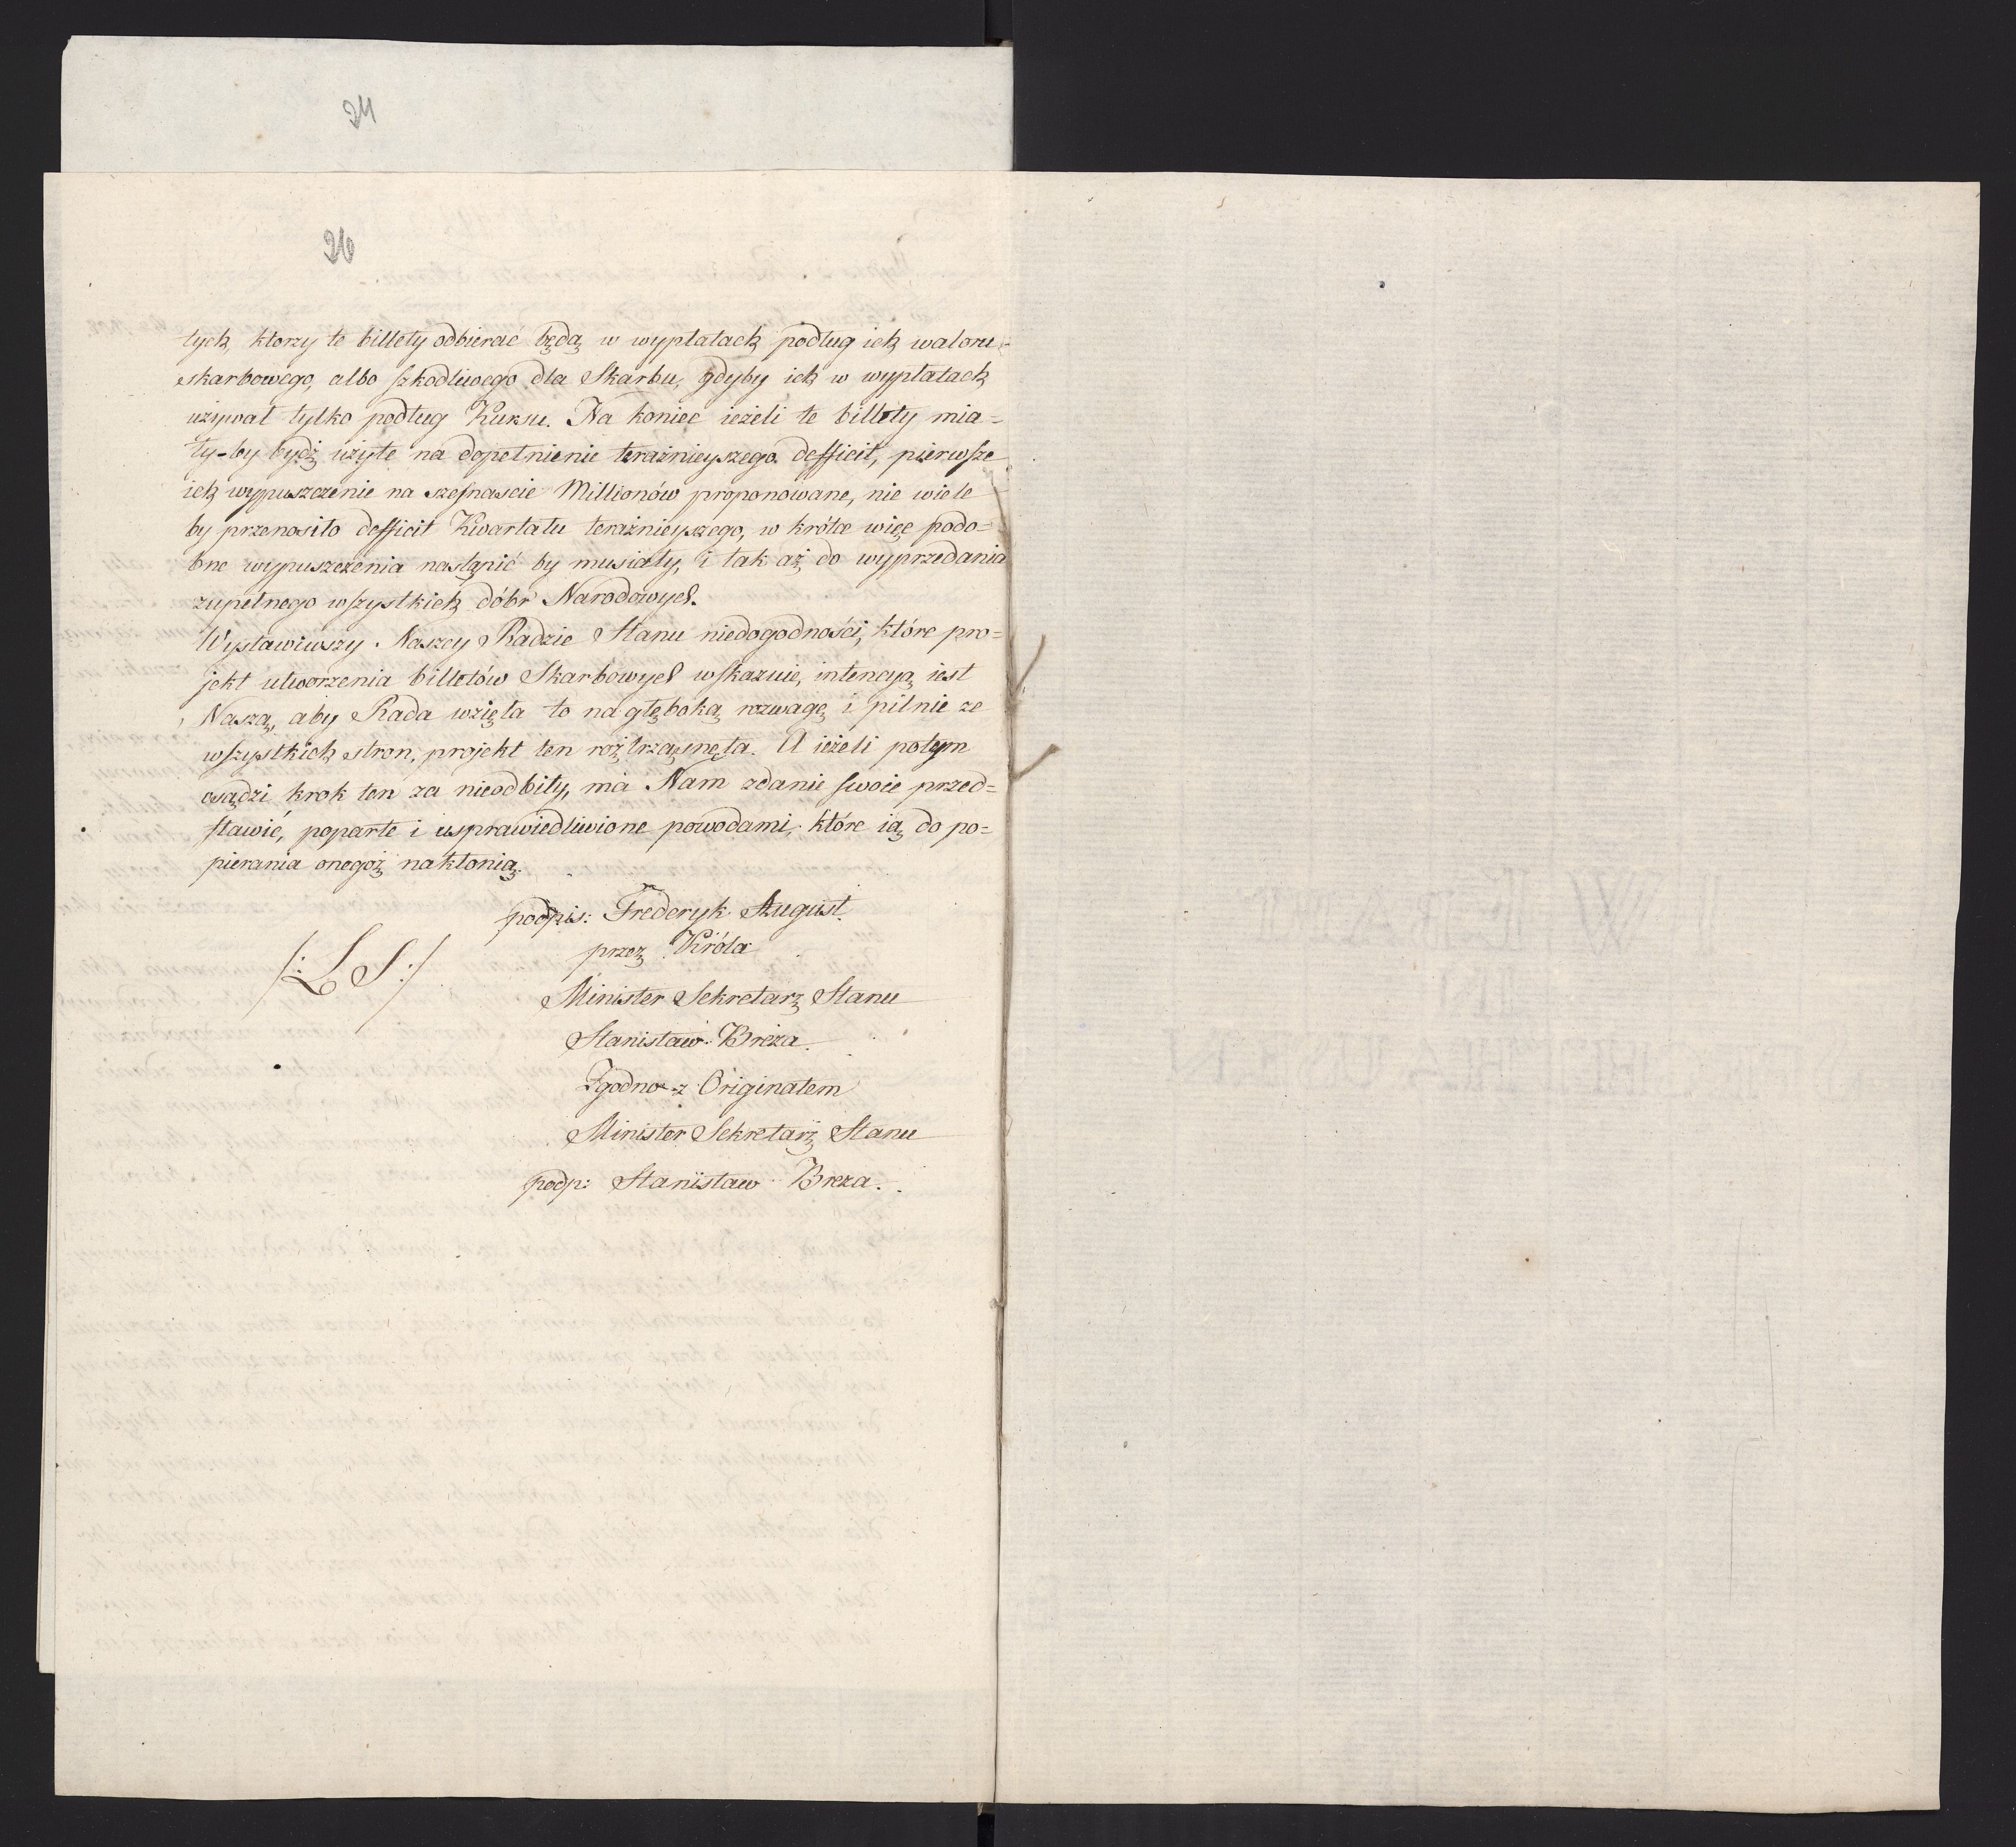 24
26
tych, ktorzy te billety odbierać będą w wypłatach podług ich waloru
skarbowego, albo szkodliwego dla Skarbu, gdyby ich w wypłatach
używał tylko podług Kursu. Na koniec ieżeli te billety mia=
ły-by bydź użyte na dopełnienie teraźnieyszego defficit, pierwsze
ich wypuszczenie na szesnascie Millionów proponowane, nie wiele
by przenosiło defficit Kwartału teraźnieyszego, w krótce więc podo=
bne wypuszczenia nastąpić by musiały, i tak aż do wyprzedania
zupełnego wszystkich dóbr Narodowych.
Wystawiwszy Naszey Radzie Stanu niedogodności, które pro=
jekt utworzenia billetów Skarbowych wskazuie, intencyą iest
Naszą, aby Rada wzięła to na głęboką rozwagę i pilnie ze
wszystkich stron, projekt ten roztrząsnęła. A ieżeli potym
osądzi krok ten za nieodbity, ma Nam zdanie swoie przed=
stawić, poparte i usprawiedliwione powodami, które ią do po=
pierania onegoż nakłonią.
podpis: Frederyk August.
przez Króla
/: L S :/
Minister Sekretarz Stanu
Stanisław Breza.
Zgodno z Originałem
Minister Sekretarz Stanu
podp: Stanisław Breza.